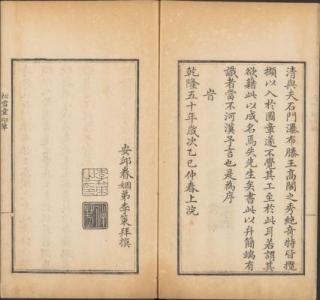 清與夫石門瀑布滕王高閣之秀絶奇特皆攬
擷以入於圖章遂不覺其工至於此耳若謂其
欲藉此以成名焉失先生矣書此以弁簡端有
識者當不河漢予言也是為序
旹
乾隆五十年歲次乙巳仲春上浣
安邱眷姻弟李 拜撰
松雪堂印萃